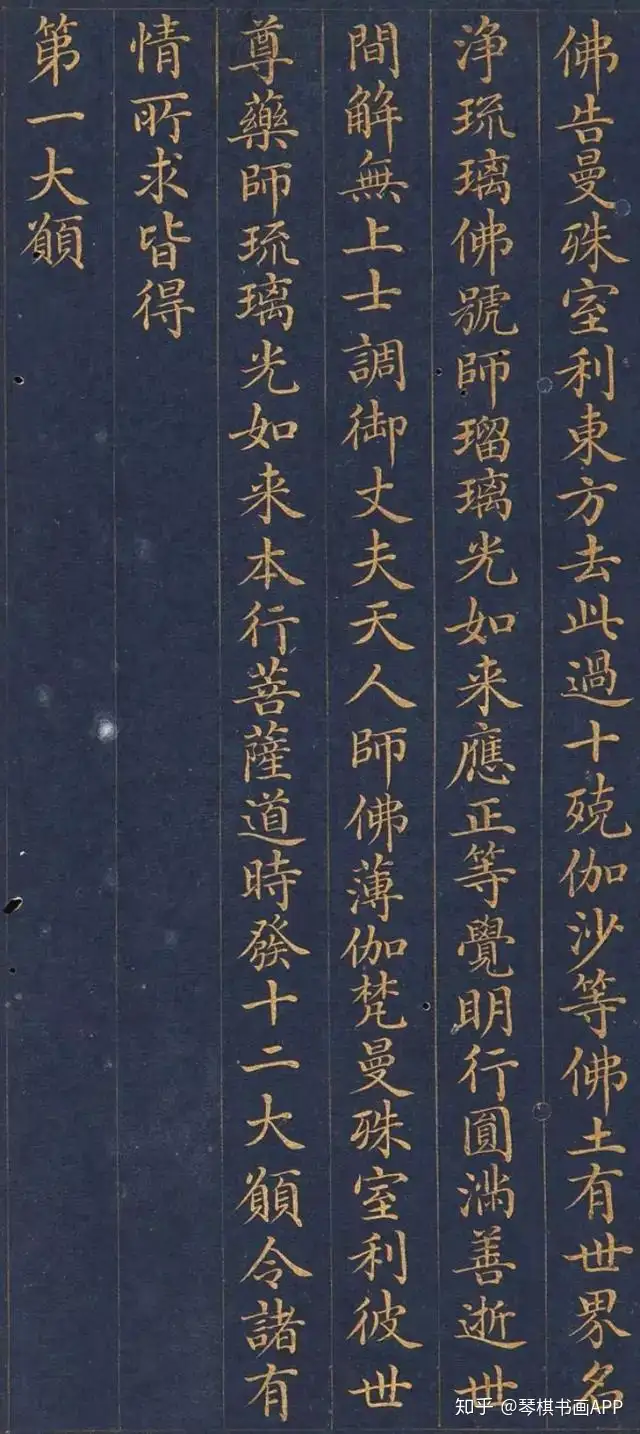 佛告曼殊室利東方去此過十殑伽沙等佛土有世界名
浄琉璃佛號師瑠璃光如来應正等覺明行圓滿善逝世
間解無上士調御丈夫天人師佛薄伽梵曼殊室利彼世
尊藥師琉璃光如来本行菩薩道時發十二大願令諸有
情所求皆得
第一大願
知乎 @琴棋书画APP